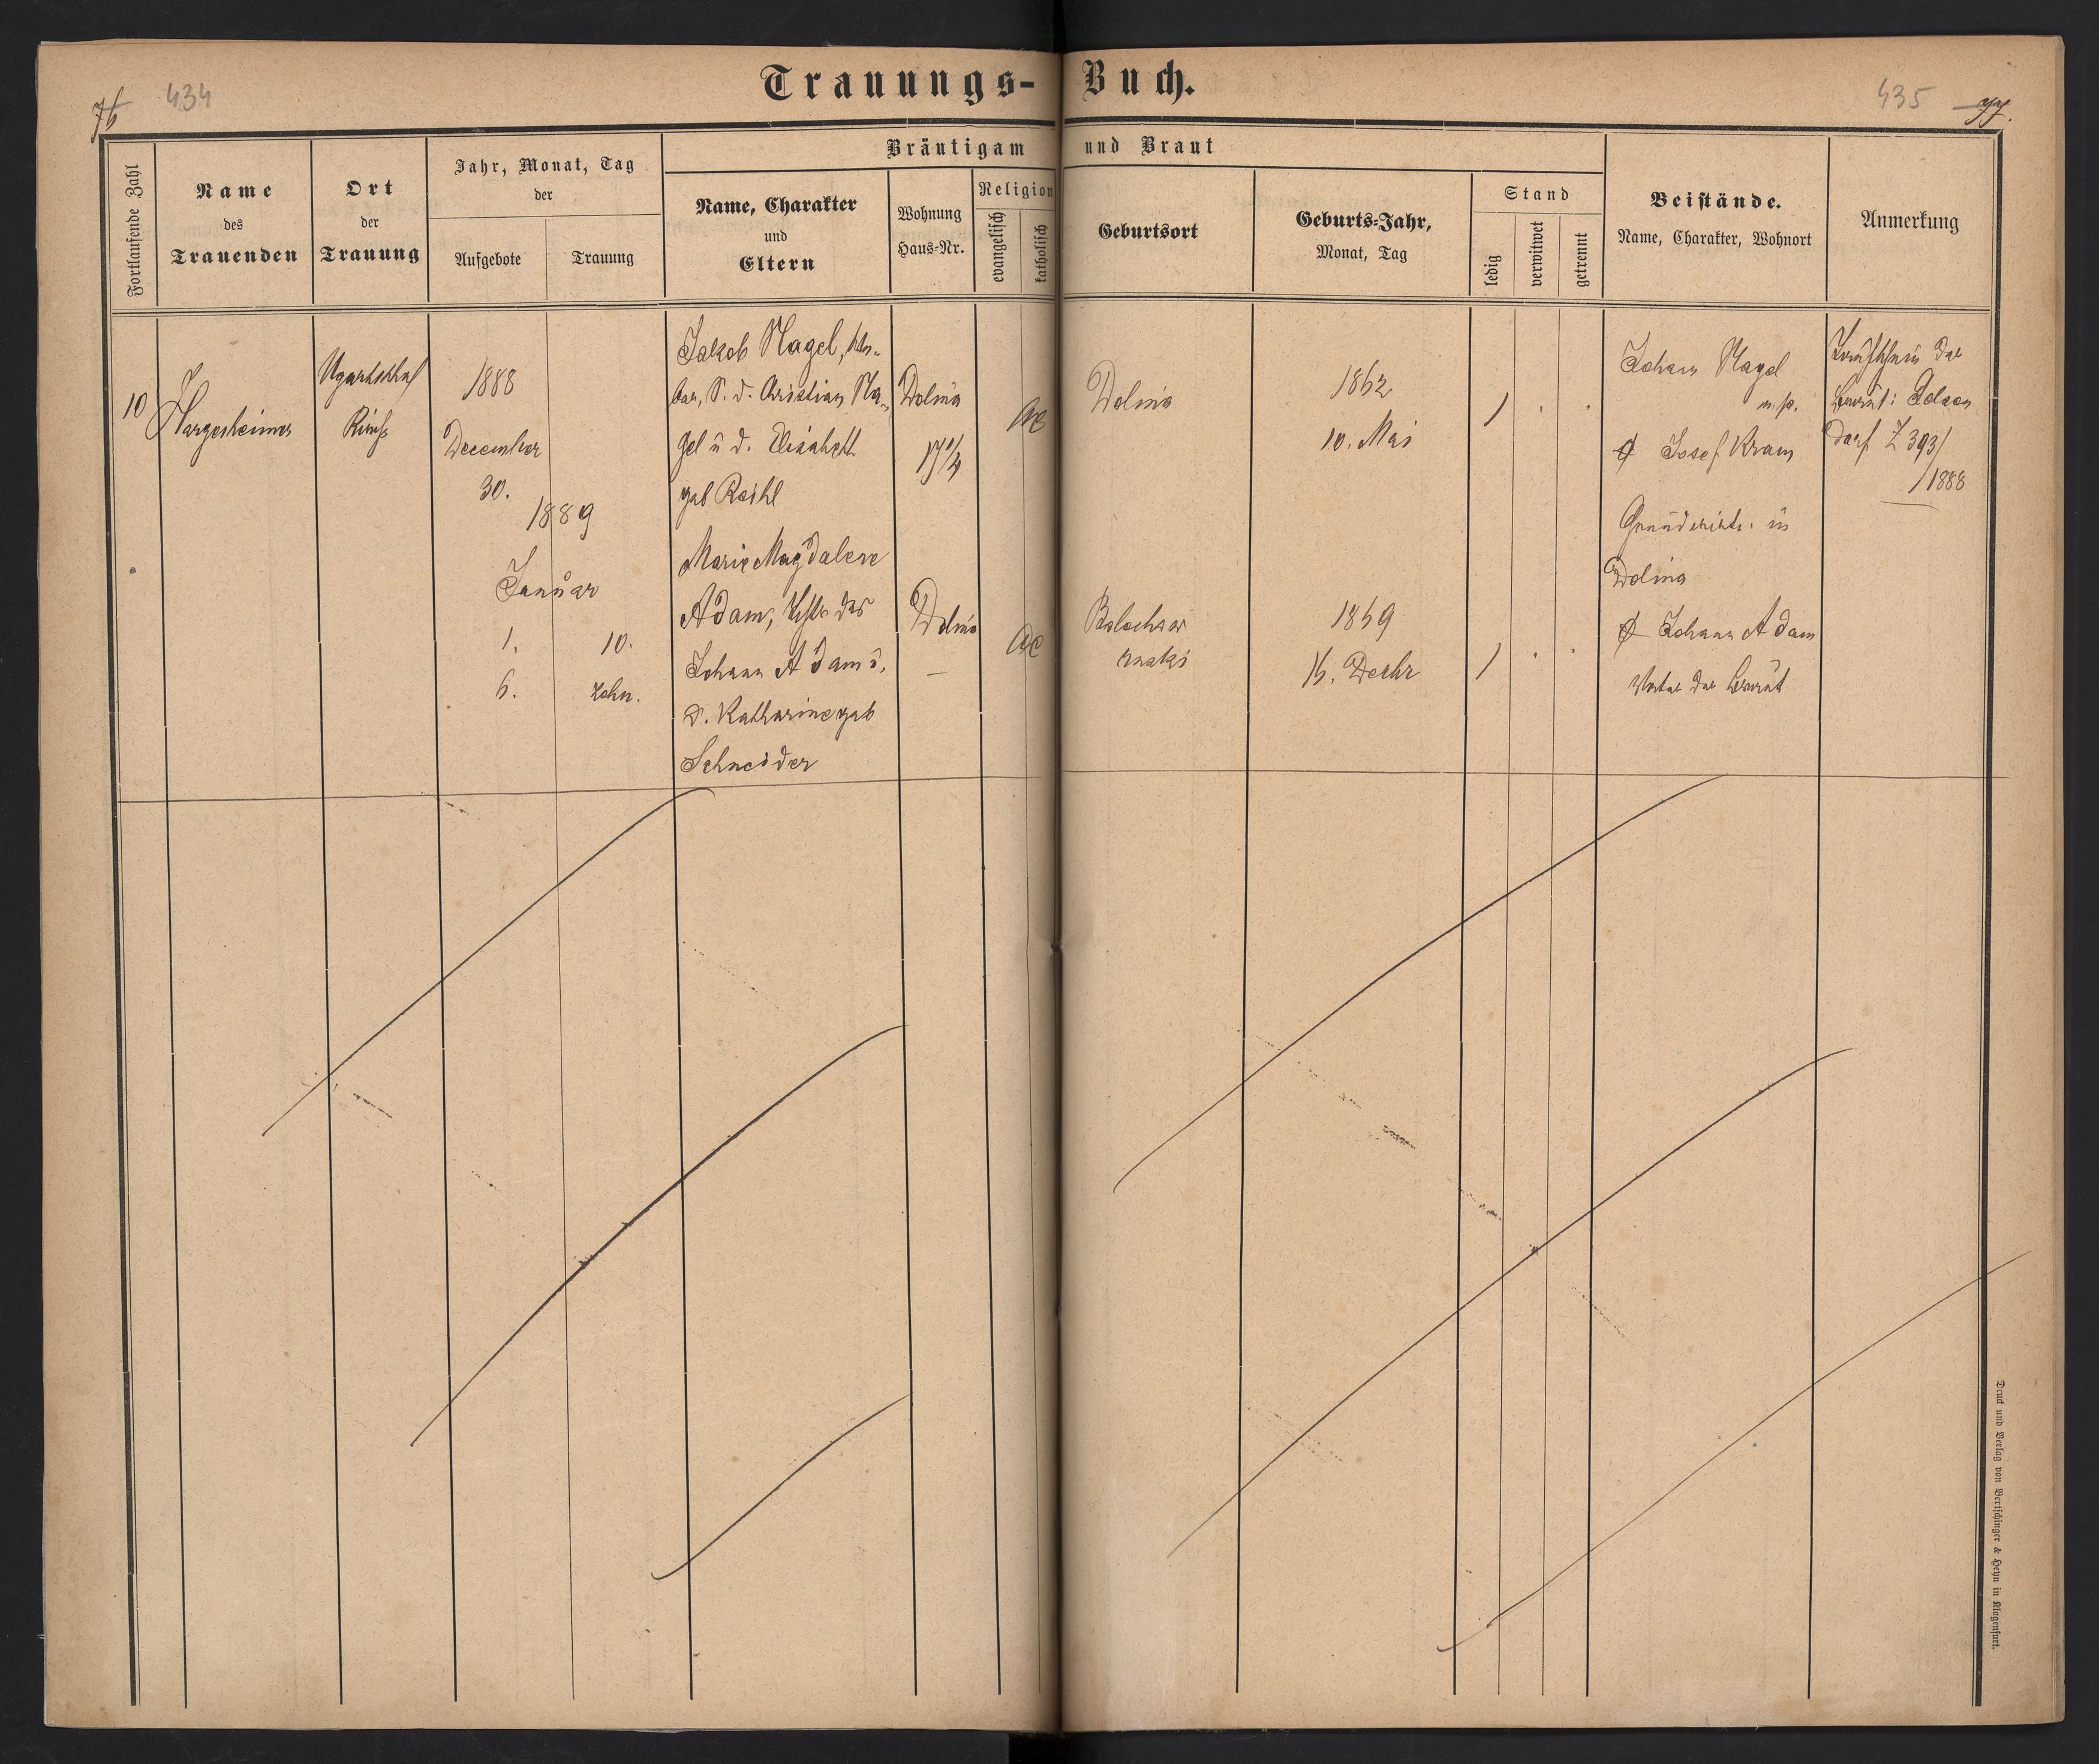 Trauungs-Buch.
76 434
435 77.
Fortlaufende Zahl
Name
des
Trauenden
Ort
der
Trauung
Jahr, Monat, Tag
der
Aufgebote
Trauung
Bräutigam und Braut
Name, Charakter
und
Eltern
Wohnung
Haus-Nr.
Religion
evangelisch
katholisch
Geburtsort
Geburts-Jahr,
Monat, Tag
Stand
ledig
verwitwet
getrennt
Beistände.
Name, Charakter, Wohnort
Anmerkung
10
Hargesheimer
Ugartsthal
1888
December
30.
1889
Januar
1. 10.
6. zehn.
Jakob Nagel,
S. d. Christian Na-
gel u d. Elisabeth
geb
Marie Magdalene
Adam, des
Johann Adam u.
d. Katharine geb
Schneider
Dolina
17/4
AC
Dolina
—
AC
Dolina
1862
10. Mai
1 . .
1869
16. Decbr
1 . .
Johann Nagel
m. p.
Josef Kram
in
Dolina
Johann Adam
Vater der Braut
Taufschein der
Braut:
dorf Z 393/
/1888
Druck und Verlag von Bertschinger & Heyn in Klagenfurt.